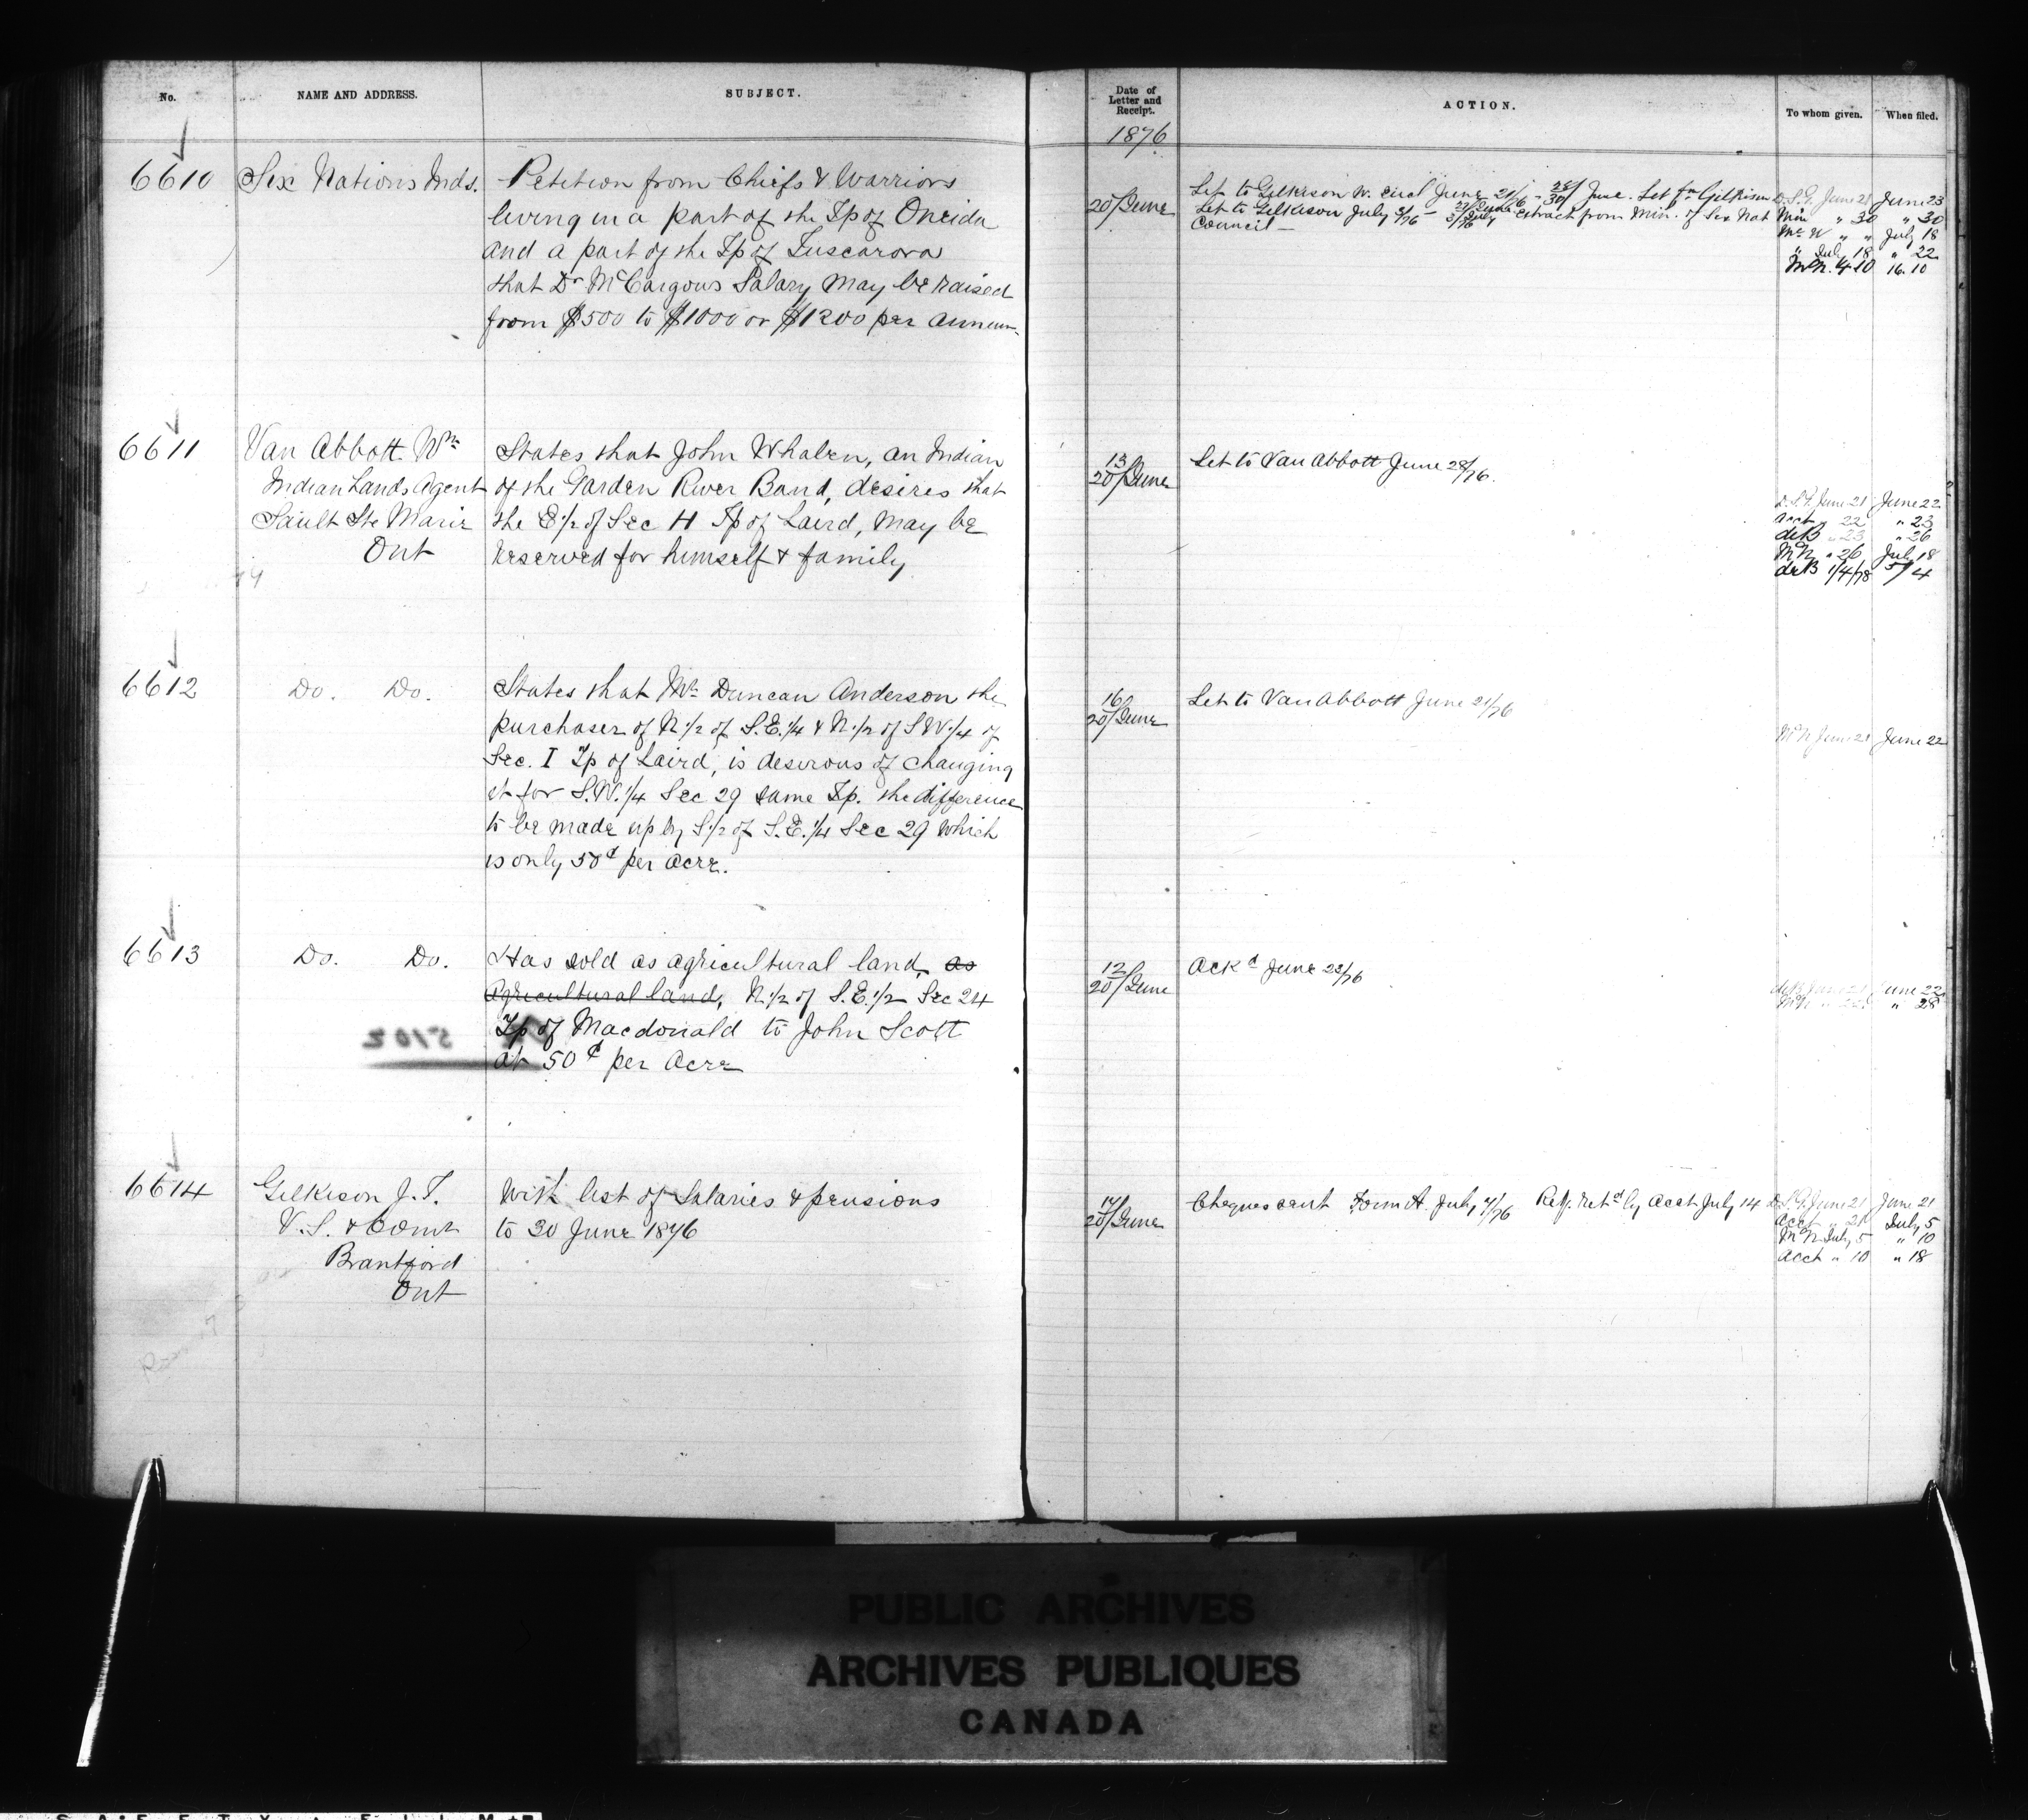 No.
NAME AND ADDRESS.
SUBJECT.
6610
Six Nations Inds.
Petition from Chiefs & Warriors
living in a part of the Tp of Oneida
and a part of the Tp of Tuscarora
that Dr McCargows Salary may be raised
from $500 to $1000 or $1200 per annum
6611
Van Abbott. Wm
Indian Lands Agent
Sault Ste Marie
Ont
States that John Whalen, an Indian
of the Garden River Band, desires that
the E 1/2 of Sec 11 Tp of Laird, may be
reserved for himself & family
6612
Do. Do.
States that Mr Duncan Anderson the
purchaser of N 1/2 of S.E. 1/4 & N 1/2 of S W 1/4 of
Sec. I Tp of Laird, is desirous of changing
it for S.W. 1/4 Sec 29 same Tp. the difference
to be made up by S 1/2 of S.E. 1/4 Sec 29 which
is only 50 per acre.
6613
Do. Do.
Has sold as agricultural land, as
Agricultural land, N 1/2 of S.E. 1/2 Sec 24
Tp of Macdonald to John Scott
at 50 per Acre
6614
Gilkison J. T.
V. S. & Comr
Brantford
Ont
With list of Salaries & pensions
to 30 June 1876
Date of
Letter and
Receipt.
ACTION.
To whom given.
When filed.
1876
20/June
Let to Gilkison W. encl June 21/76 - 28/30 June. Let fm Gilkison
Let to Gilkison July extract from Min. of Six Nat
Council —
D.S.G. June 21 June 23
Min " 30 " 30
" " July 18
" July 18 " 22
13
20/June
Let to Van Abbott June 28/76.
D.S.G. June 21 June 22
Acct " 22 " 23
deB " 23 " 26
" 26 July 18
deB 1/4/78 5/4
16
20/June
Let to Van Abbott June 21/76
June 21 June 22
12
20/June
Ackd June 23/76
deB June 21 June 22
" 28
17
20/June
Cheques sent Form A. July 7/76 Retd by Acct July 14
D.S.G. June 21 June 21
Acct " 21 July 5
July 5 " 10
Acct " 10 " 18
PUBLIC ARCHIVES
ARCHIVES PUBLIQUES
CANADA